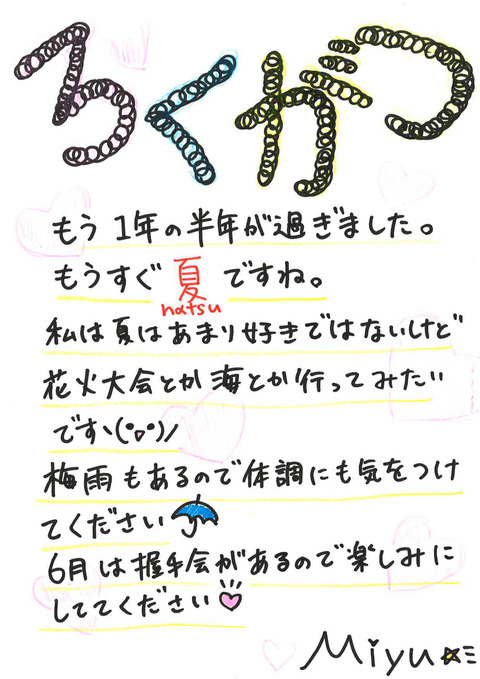 ろくがつ
もう1年の半年が過ぎました。
もうすぐ夏ですね。
natsu
私は夏はあまり好きではないけど
花火大会とか海とか行ってみたい
ですヽ(°▽°)ノ
梅雨もあるので体調にも気をつけ
てください
6月は握手会があるので楽しみに
しててください
Miyu